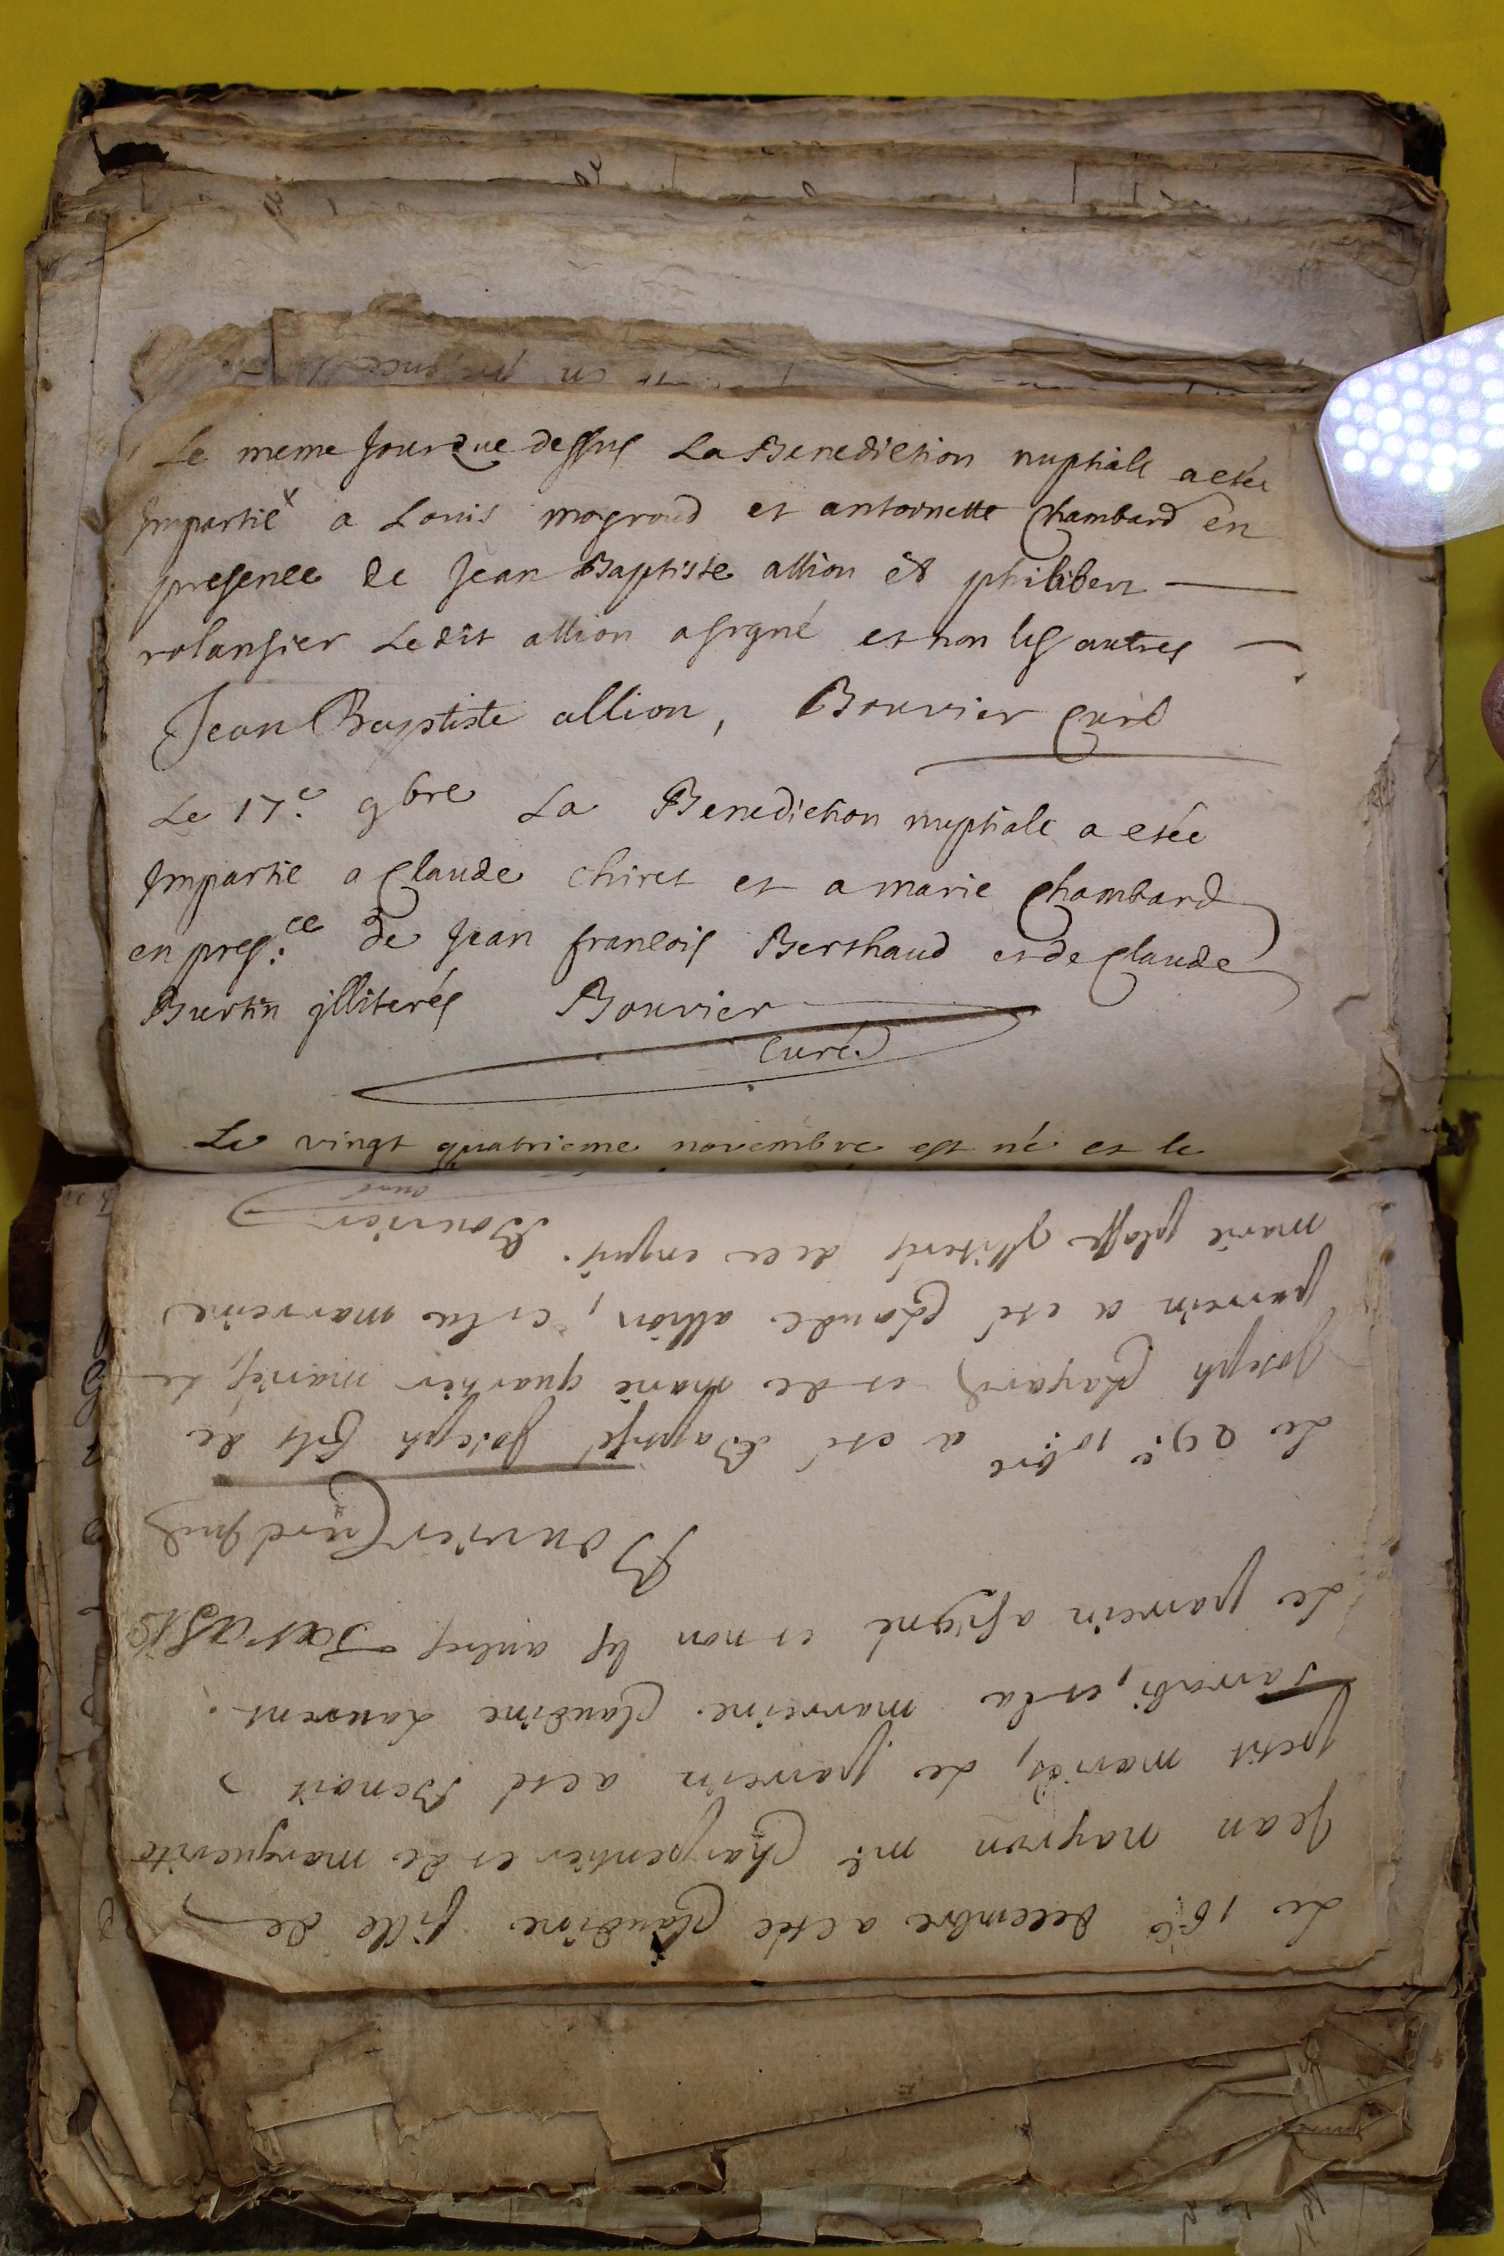 Le meme jour que dessus La Benediction nuptiale a etée
jmpartie a Louis mogroud et antoinette Chambard en
presence de jean Baptiste allion et philibert
rolansier Ledit allion a signé et non les autres
Jean Baptiste allion, Bouvier Curé
Le 17.e 9bre La Benediction nuptiale a etée
jmpartie a Claude chiret et a marie Chambard
en pres.ce de jean francois Berthaud et de Claude
Burtin jlliterés Bouvier
Curé
Le vingt quatrieme novembre est né et le
Le 16.e decembre a etée Claudine fille de
jean mayron m.e Charpentier et de marguerite
petit mariés, Le parrein a eté Benoit
Sarrasi, et la marreine Claudine Laurent.
Le parrein a signé et non les autres
Bouvier Curé
Le 29.e 10.bre a eté Baptisé joseph fils de
joseph Chayard et de marie quartier mariés, Le
parrein a eté Claude allion, et la marreine
marie plasse jlliterés de ce enquis. Bouvier
curé